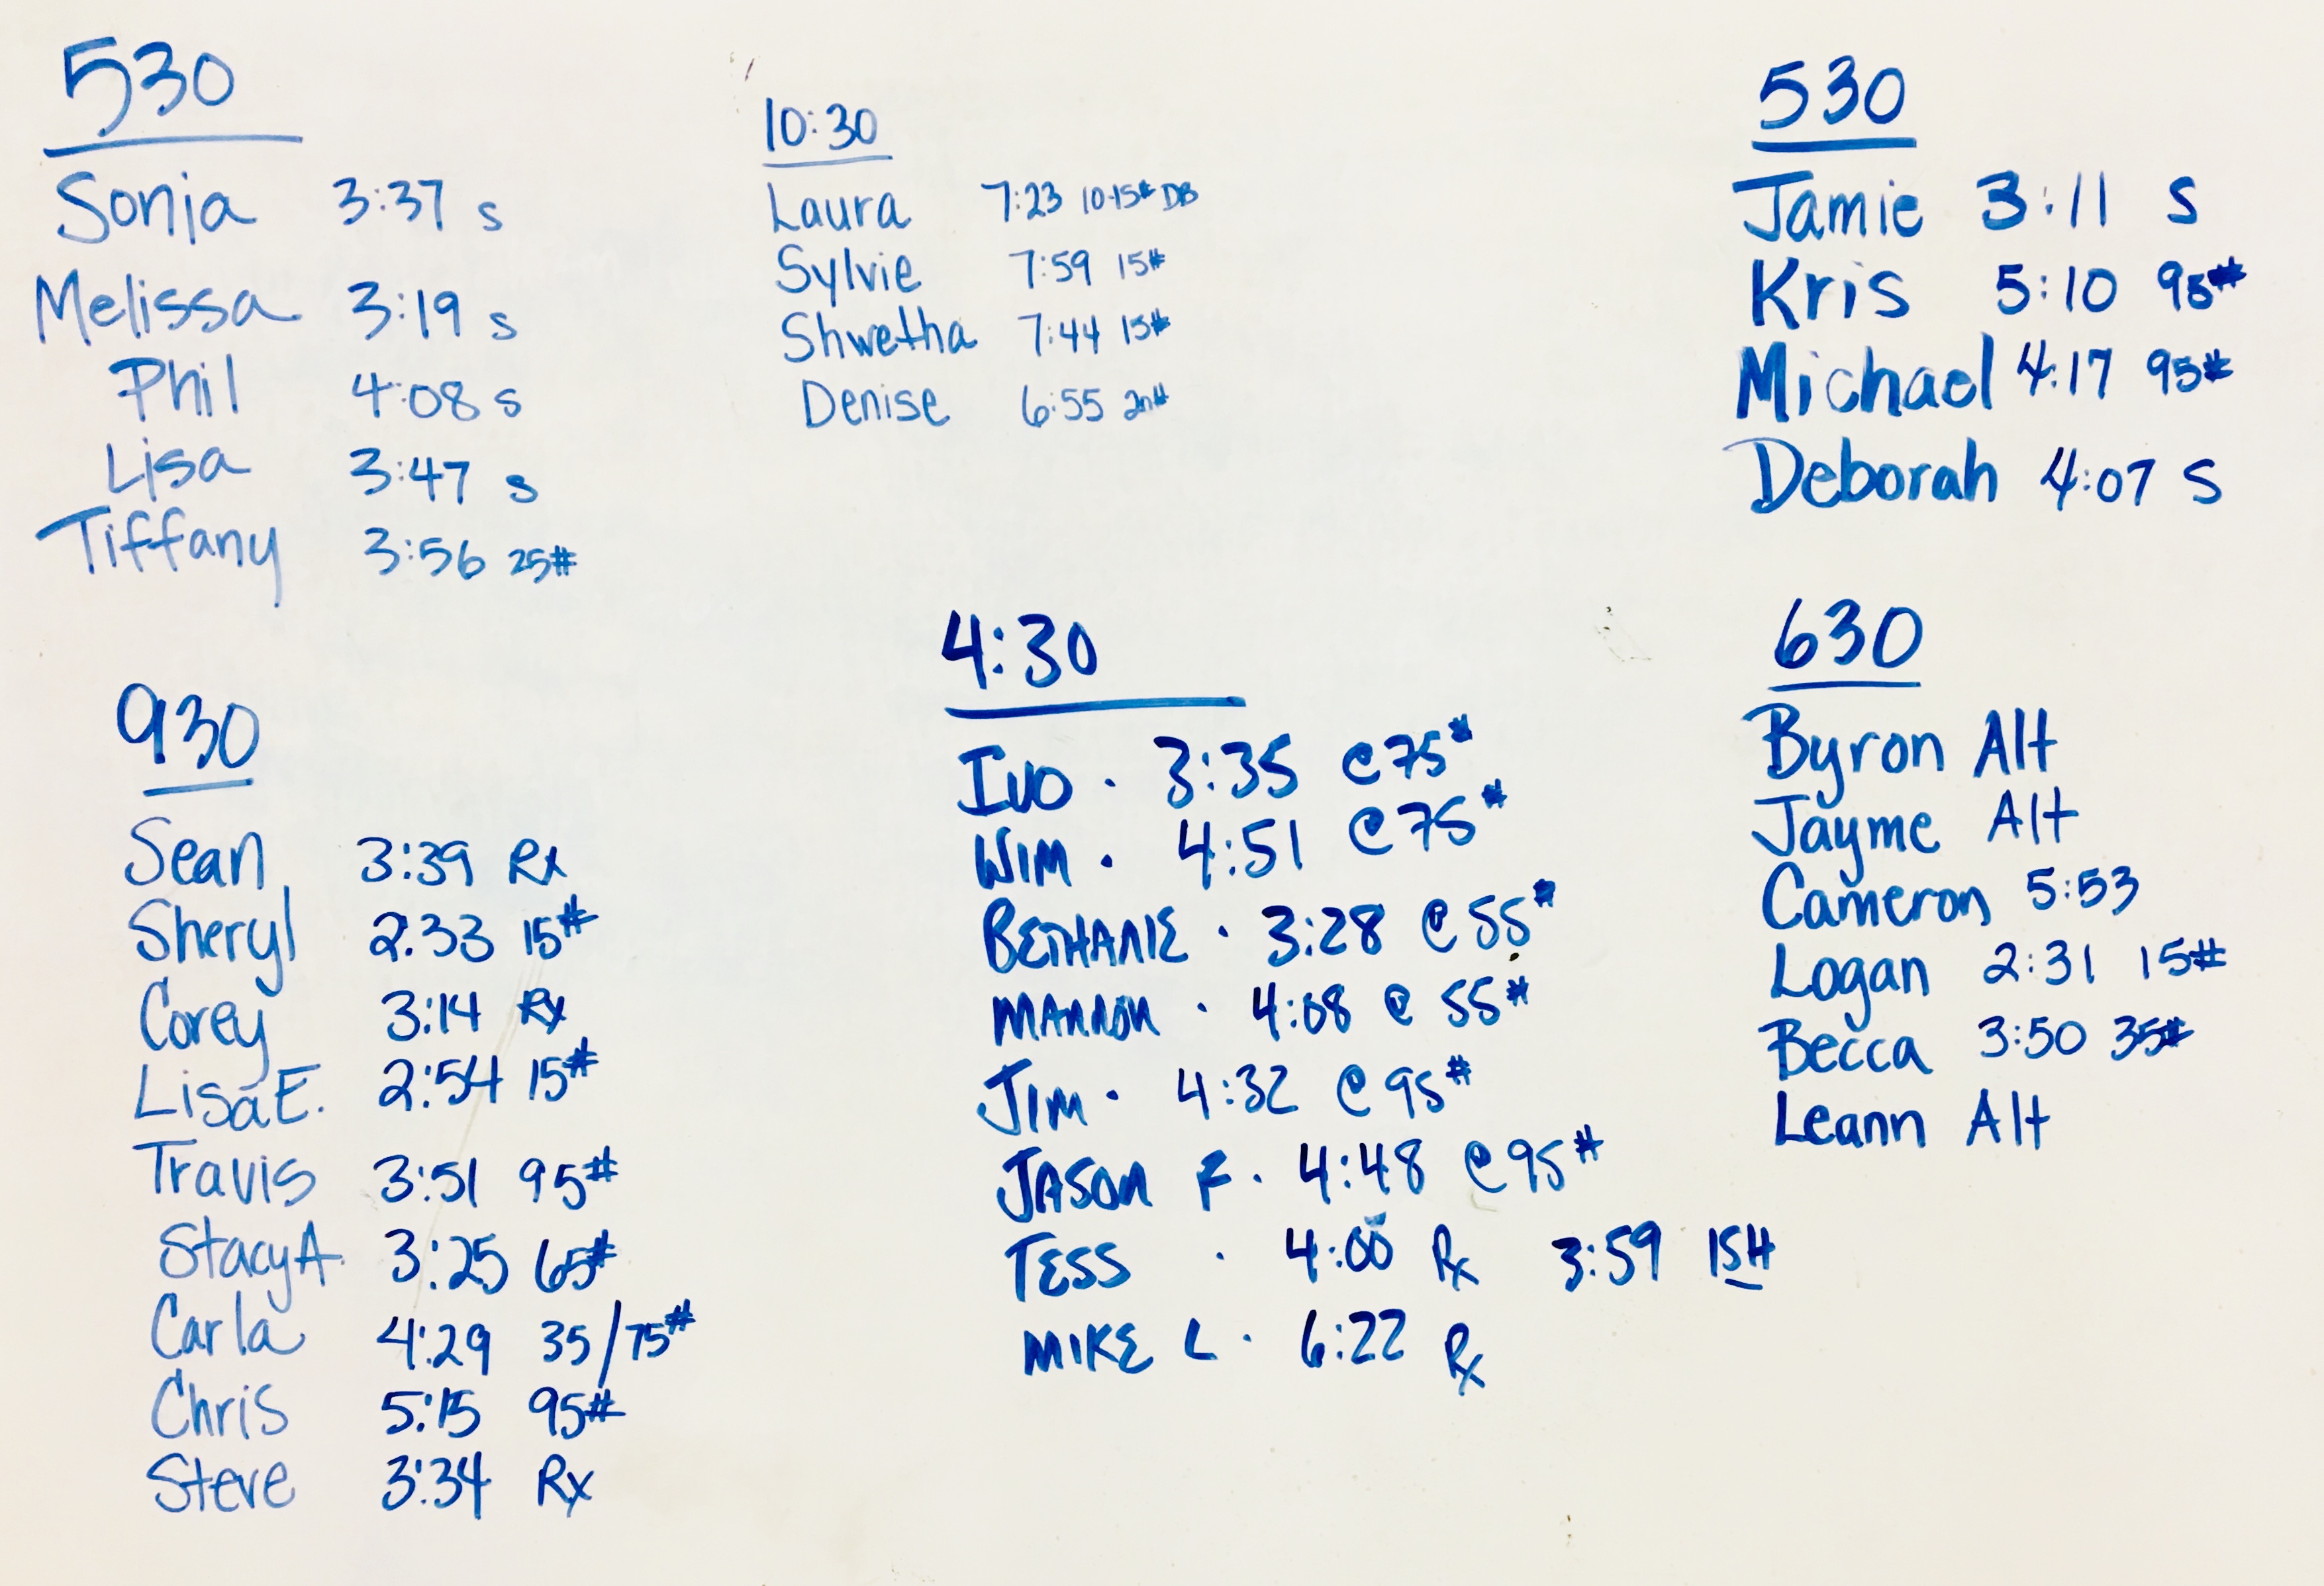 530
Sonia 3:37 s
Melissa 3:19 s
Phil 4:08 s
Lisa 3:47 s
Tiffany 3:56 25#
930
Sean 3:39 Rx
Sheryl 2:33 15#
Corey 3:14 Rx
Lisa E. 2:54 15#
Travis 3:51 95#
Stacy A. 3:25 65#
Carla 4:29 35/75#
Chris 5:15 95#
Steve 3:34 Rx
10:30
Laura 7:23 10-15# DB
Sylvie 7:59 15#
Shwetha 7:44 15#
Denise 6:55
4:30
IVO · 3:35 @ 75#
WIM · 4:51 @ 75#
BETHANIE · 3:28 @ 55#
MANNON · 4:08 @ 55#
JIM · 4:32 @ 95#
JASON F · 4:48 @ 95#
TESS · 4:00 Rx 3:59 ISH
MIKE L · 6:22 Rx
530
Jamie 3:11 S
Kris 5:10 95#
Michael 4:17 95#
Deborah 4:07 S
630
Byron Alt
Jayme Alt
Cameron 5:53
Logan 2:31 15#
Becca 3:50 35#
Leann Alt